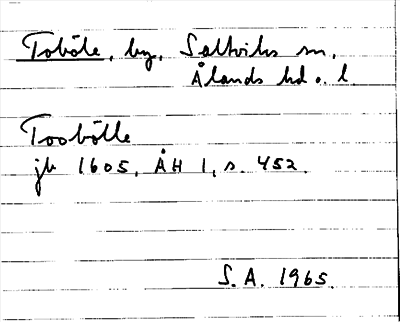 Toböle, by, Saltviks sn,
Ålands hd o. l.
Tooböлle
jb 1605, ÅH 1, s. 452.
S. A. 1965.